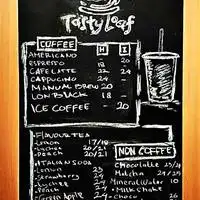 Tasty Leaf
COFFEE H I
AMERICANO 20
ESPRESSO 18
CAFE LATTE 22 24
CAPPUCINO 22 24
MANUAL BREW 20
LONBLACK 18 -
ICE COFFEE - 20
FLAVOUR TEA
-Lemon 17/18
-Lychee 20/21
-Peach 20/21
ITALIAN SODA
-Lemon 23
-Strawberry 24
-Lychee 24
-Peach 24
-Green Apple 24
NON COFFEE
Chocolatte 23/24
Matcha 24/25
Mineral Water 10
• Milkshake
- Choco